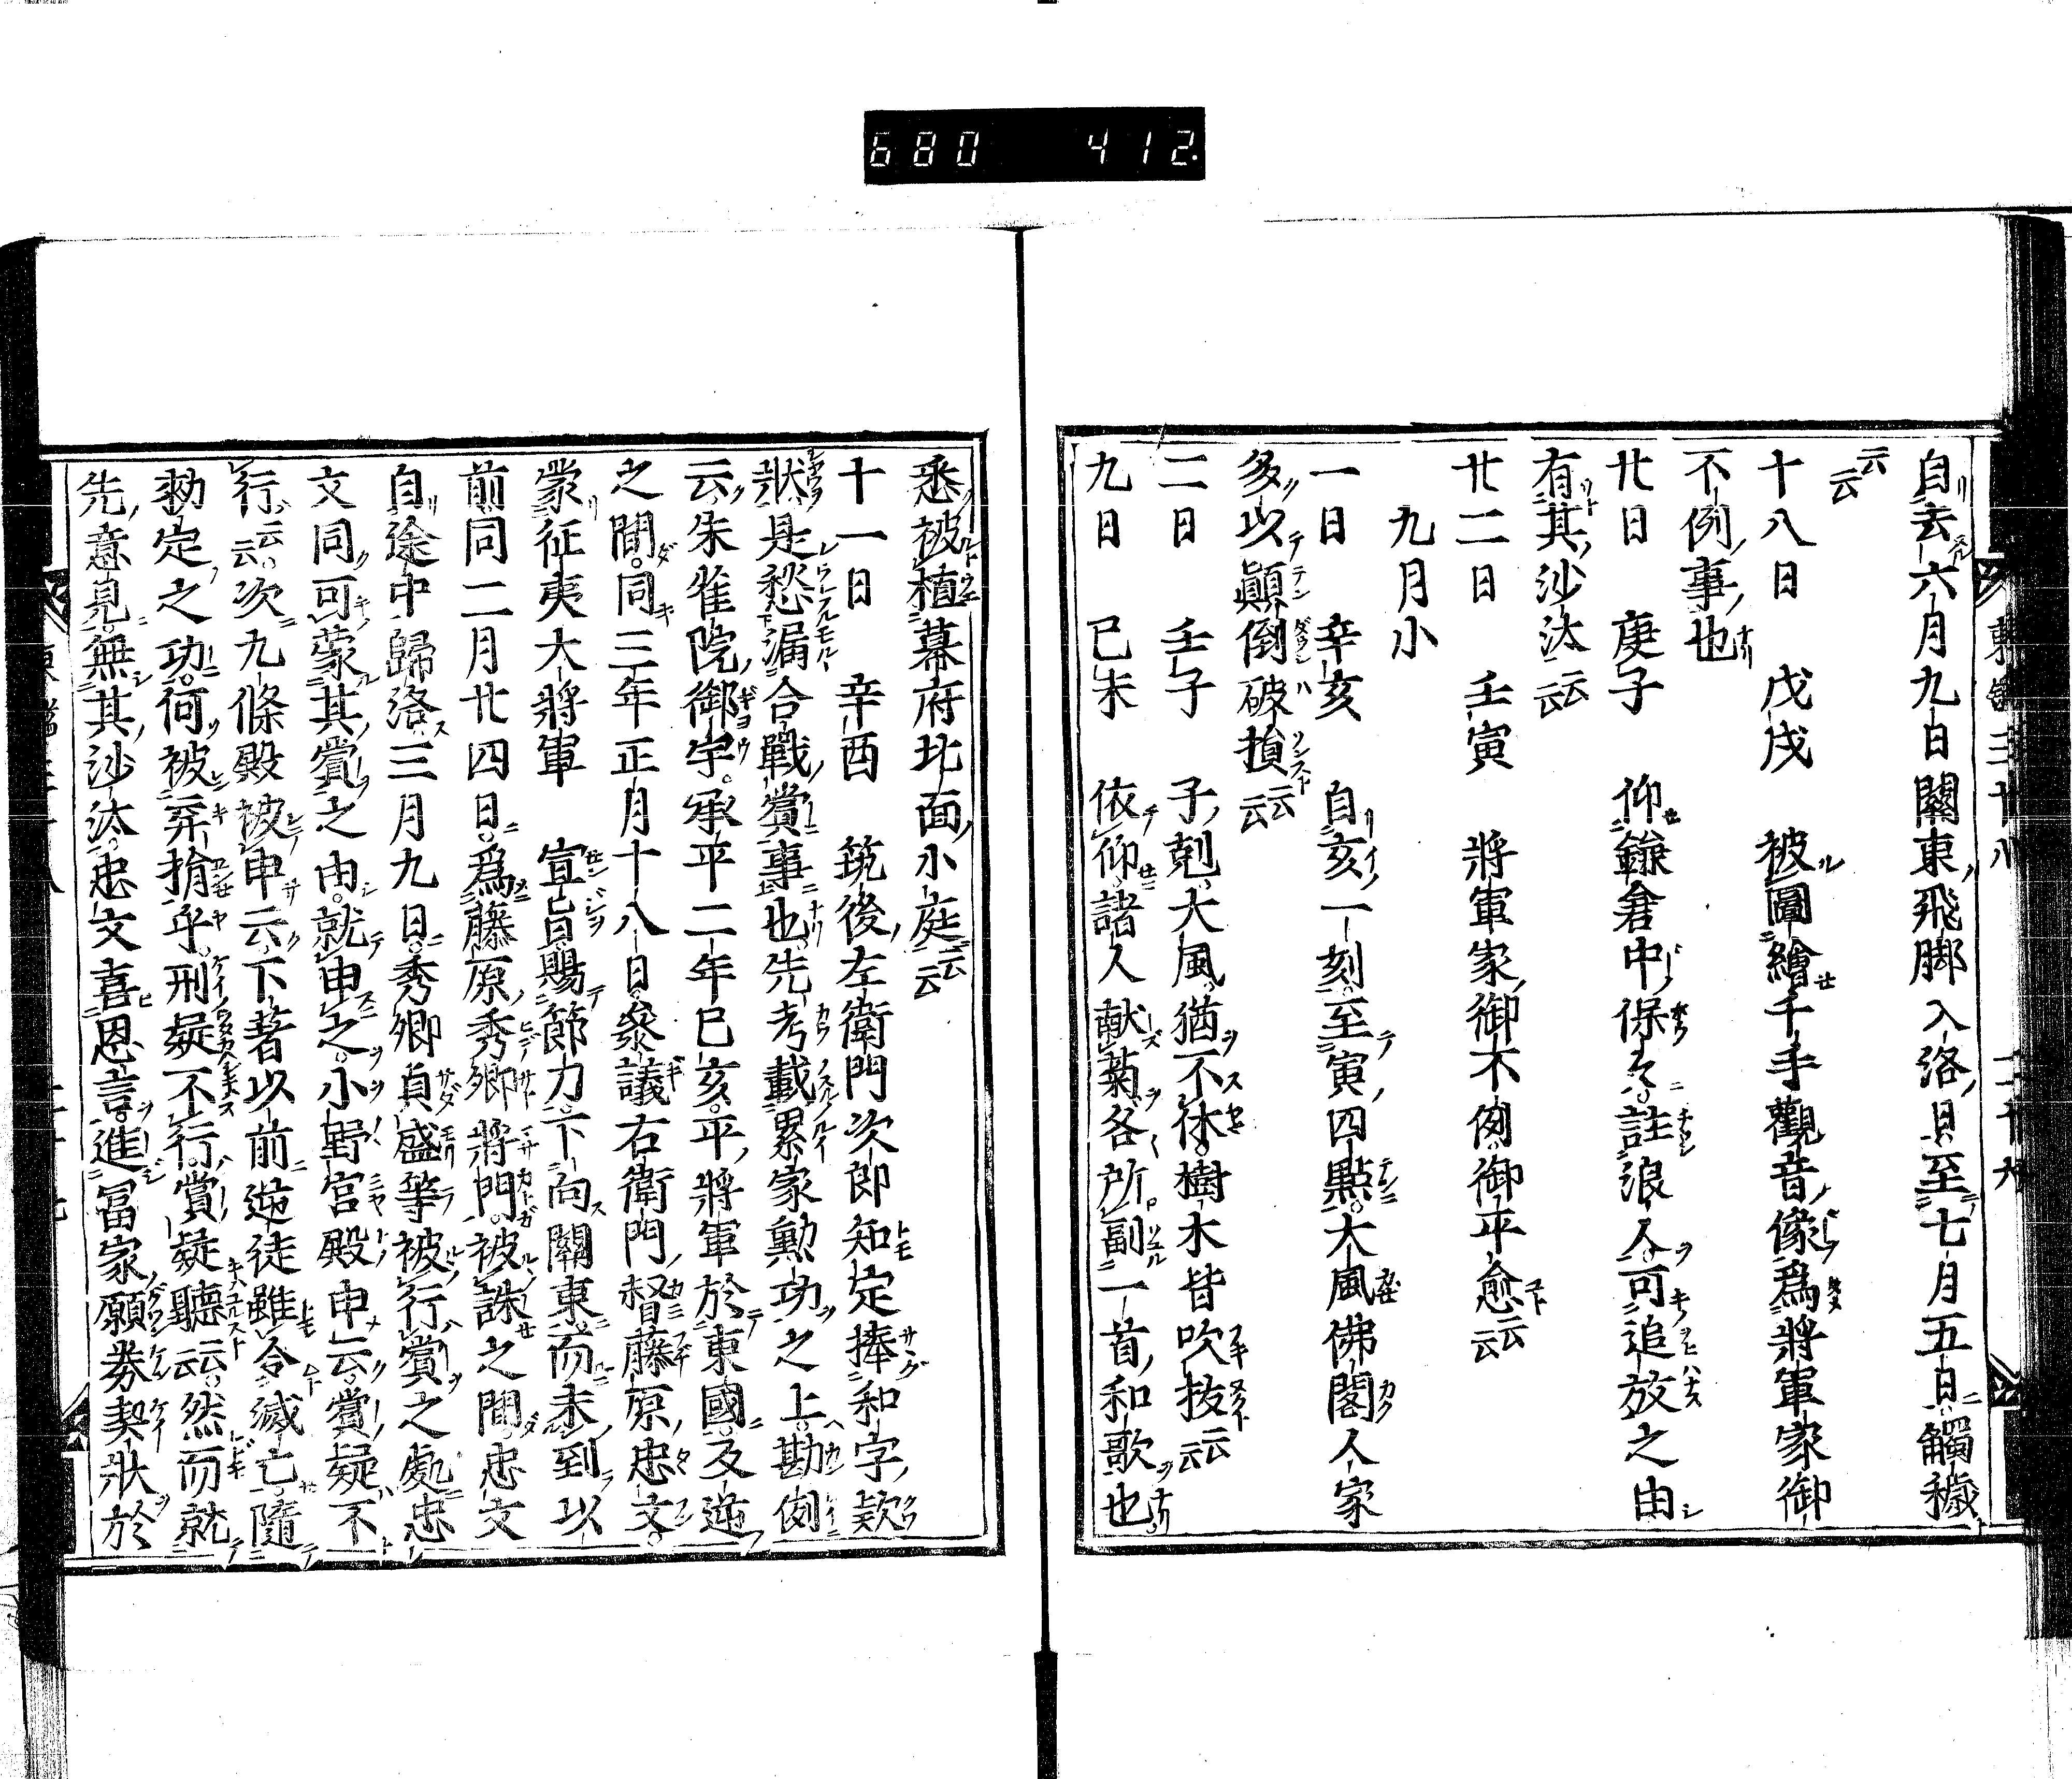 680 412.
自去六月九日關東飛脚入洛且至七月五日觸穢
云云
十八日 戊戌 被圖繪千手觀音像爲將軍家御
不例事也
廿日 庚子 仰鎌倉中保々註浪人可追放之由
有其沙汰云云
廿二日 壬寅 將軍家御不例御平愈云云
九月小
一日 辛亥 自亥一刻至寅四點大風佛閣人家
多以顚倒破損云云
二日 壬子 子剋大風猶不休樹木皆吹抜云云
九日 己未 依仰諸人献菊各所副一首和歌也
悉被植幕府北面小庭云云
十一日 辛酉 筑後左衛門次郎知定捧和字款
狀是愁漏合戰賞事也先考載累家勳功之上勘例
云朱雀院御宇承平二年己亥平將軍於東國及逆
之間同三年正月十八日參議右衛門督藤原忠文
蒙征夷大將軍 宣旨賜節刀下向關東而未到以
前同二月廿四日爲藤原秀郷將門被誅之間忠文
自途中歸洛三月九日秀郷貞盛等被行賞之處忠
文同可蒙其賞之由就申之小野宮殿申云賞疑不
行云云次九條殿被申云下著以前逆徒雖令滅亡隨
勅定之功何被弃捐乎刑疑不行賞疑聽云云然而就
先意見無其沙汰忠文喜恩言進冨家願券契狀於